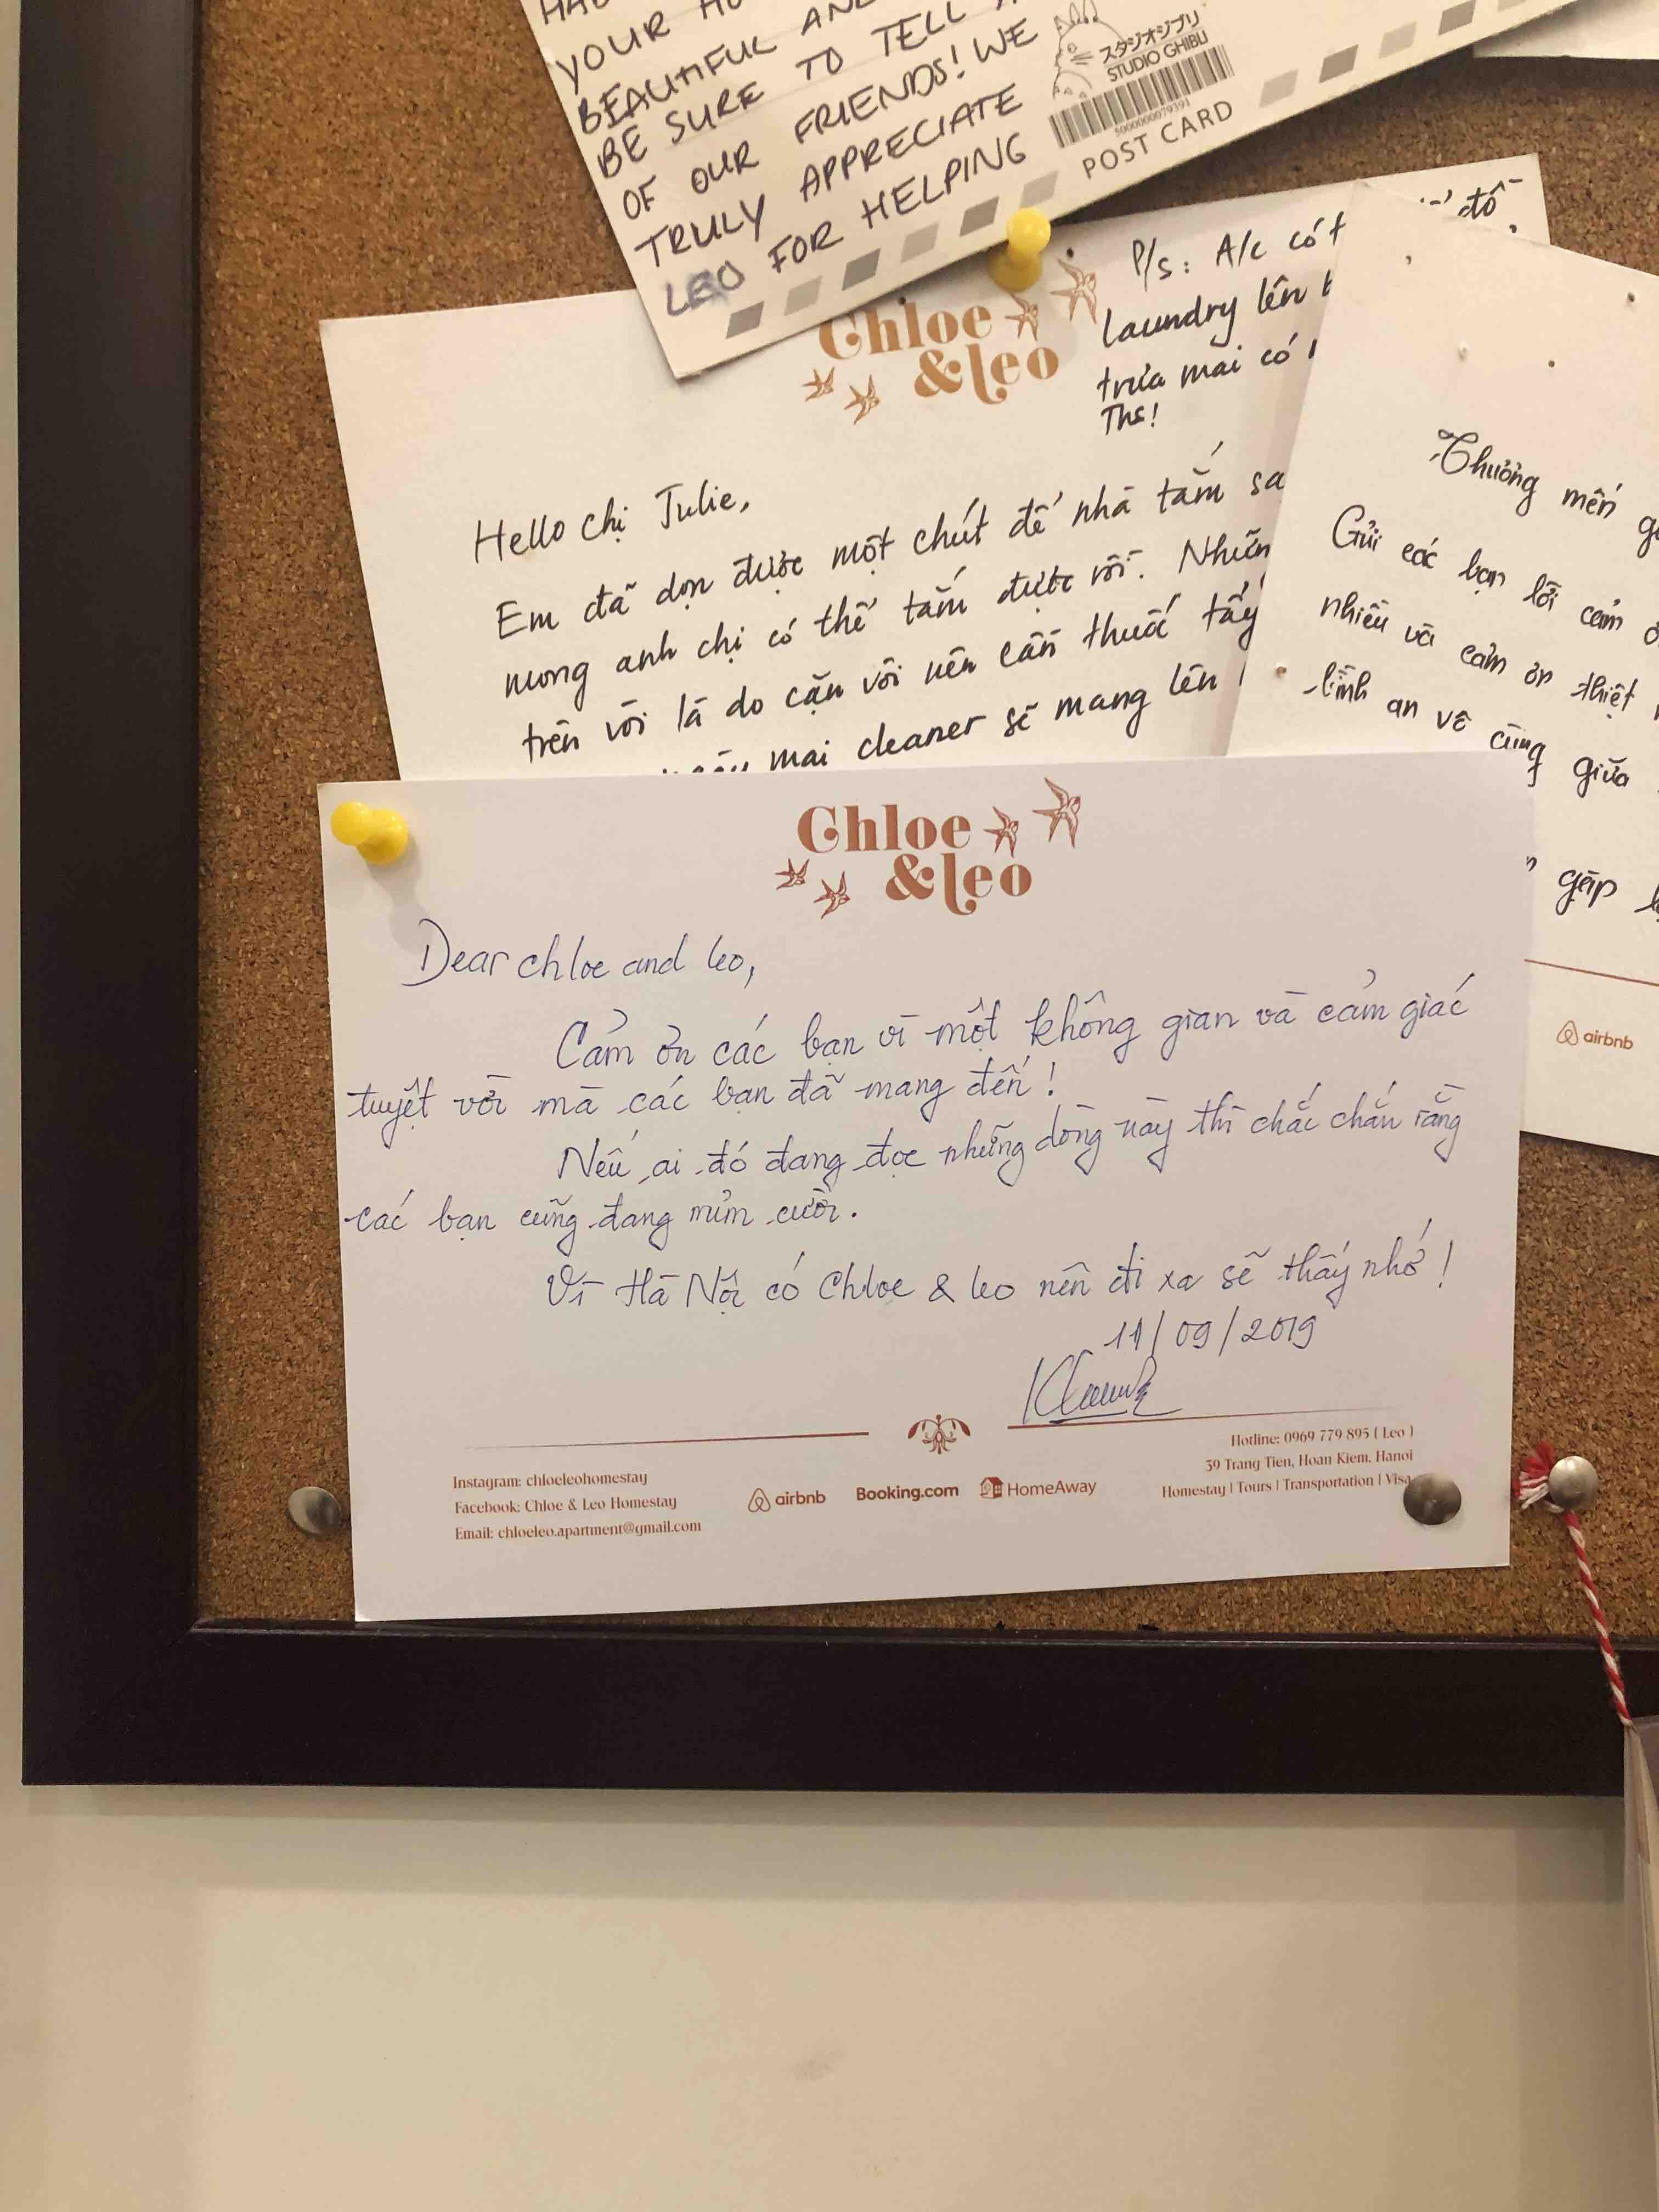 YOUR
BEAUTIFUL AND
BE SURE TO TELL
OF OUR FRIENDS! WE
TRULY APPRECIATE
LEO FOR HELPING
スタジオジブリ
STUDIO GHIBLI
POST CARD
Chloe
&leo
P/s: A/c có
đồ
laundry lên
trưa mai có
Ths!
Hello chị Julie,
Em đã dọn được một chút để nhà tắm
mong anh chị có thể tắm được rồi.
trên vòi là do cặn vôi nên cần thuốc tẩy
mai cleaner sẽ mang lên
Thương mến
Gửi các bạn lời cảm
nhiều và cảm ơn thiệt
bình an vô cùng giữa
gặp
airbnb
Chloe
&leo
Dear chloe and leo,
Cảm ơn các bạn vì một không gian và cảm giác
tuyệt vời mà các bạn đã mang đến!
Nếu ai đó đang đọc những dòng này thì chắc chắn rằng
các bạn cũng đang mỉm cười.
Vì Hà Nội có Chloe & leo nên đi xa sẽ thấy nhớ!
11/09/2019
Instagram: chloeleohomestay
Facebook: Chloe & Leo Homestay
Email: chloeleo.apartment@gmail.com
airbnb
Booking.com
HomeAway
Hotline: 0969 779 895 ( Leo )
39 Trang Tien, Hoan Kiem, Hanoi
Homestay | Tours | Transportation | Visa